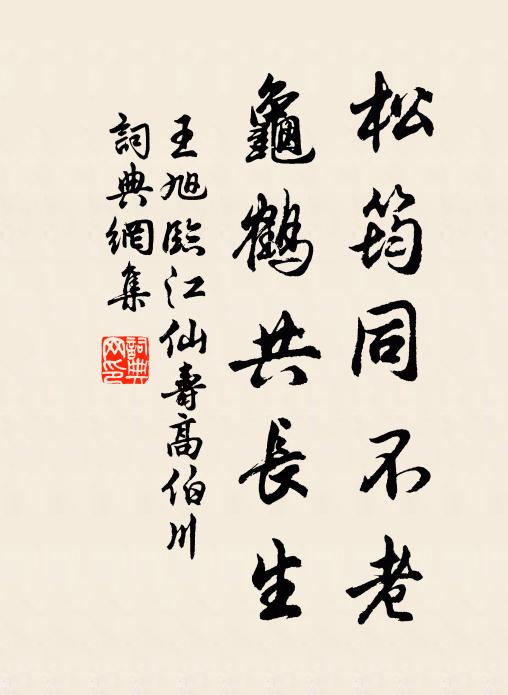 松筠同不老
龜鶴共長生
王旭臨江仙壽高伯川
詞典網集
詞典網印